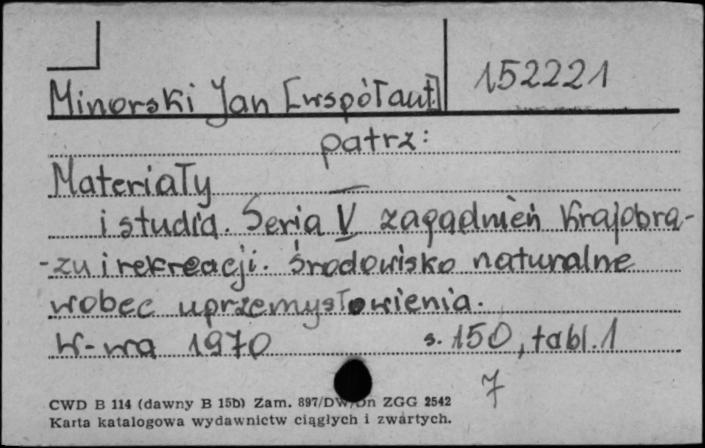 152221
Minorski Jan [współaut.]
patrz:
Materiały
i studia. Seria V zagadnień Krajobra-
-zu i rekreacji. Środowisko naturalne
wobec uprzemysłowienia.
W-wa 1970 s. 150, tabl. 1
7
CWD B 114 (dawny B 15b) Zam. 897/DW/Dn ZGG 2542
Karta katalogowa wydawnictw ciągłych i zwartych.